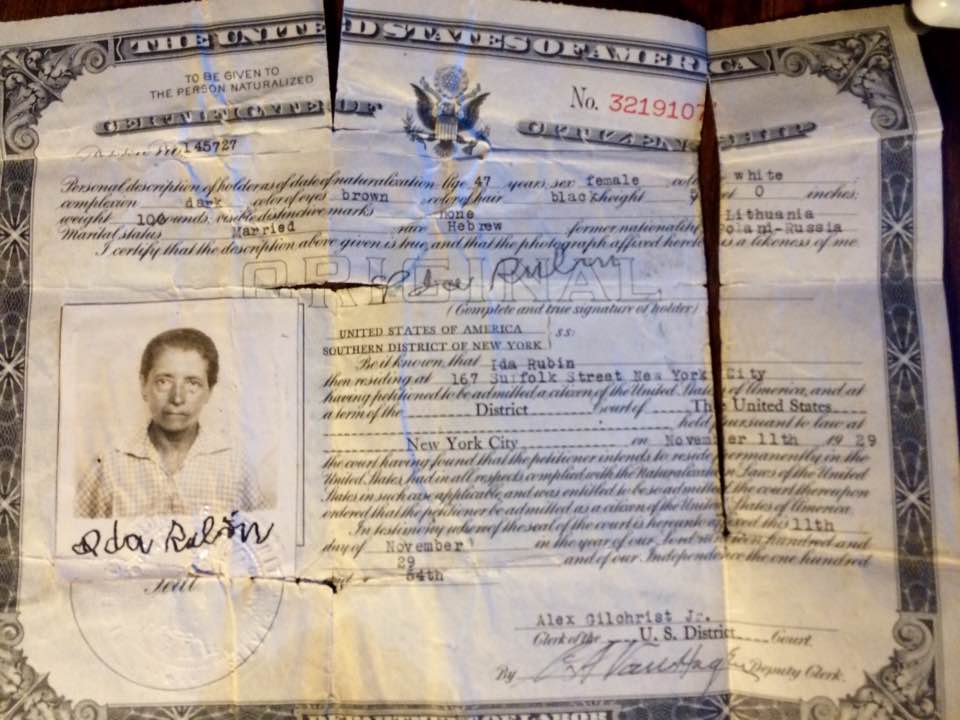 THE UNITED STATES OF AMERICA
TO BE GIVEN TO
THE PERSON NATURALIZED
No. 3219107
CERTIFICATE OF CITIZENSHIP
145727
Personal description of holder as of date of naturalization: Age 47 years; sex female color white
complexion dark color of eyes brown color of hair black height feet 0 inches;
weight 100 pounds; visible distinctive marks none
Lithuania
Marital status Married race Hebrew former nationality Poland-Russia
I certify that the description above given is true, and that the photograph affixed hereto is a likeness of me.
ORIGINAL
Ida Rubin
(Complete and true signature of holder)
UNITED STATES OF AMERICA
SOUTHERN DISTRICT OF NEW YORK
ss:
Be it known, that Ida Rubin
then residing at 167 Suffolk Street New York City
having petitioned to be admitted a citizen of the United States of America, and at
a term of the District Court of The United States
held pursuant to law at
New York City on November 11th 1929
the court having found that the petitioner intends to reside permanently in the
United States had in all respects complied with the Naturalization Laws of the United
States in such case applicable, and was entitled to be so admitted, the court thereupon
ordered that the petitioner be admitted as a citizen of the United States of America.
In testimony whereof the seal of the court is hereunto affixed this 11th
day of November in the year of our Lord nineteen hundred and
29 and of our Independence the one hundred
and 54th
Ida Rubin
Seal
Alex Gilchrist Jr.
Clerk of the U. S. District Court.
By Deputy Clerk.
DEPARTMENT OF LABOR